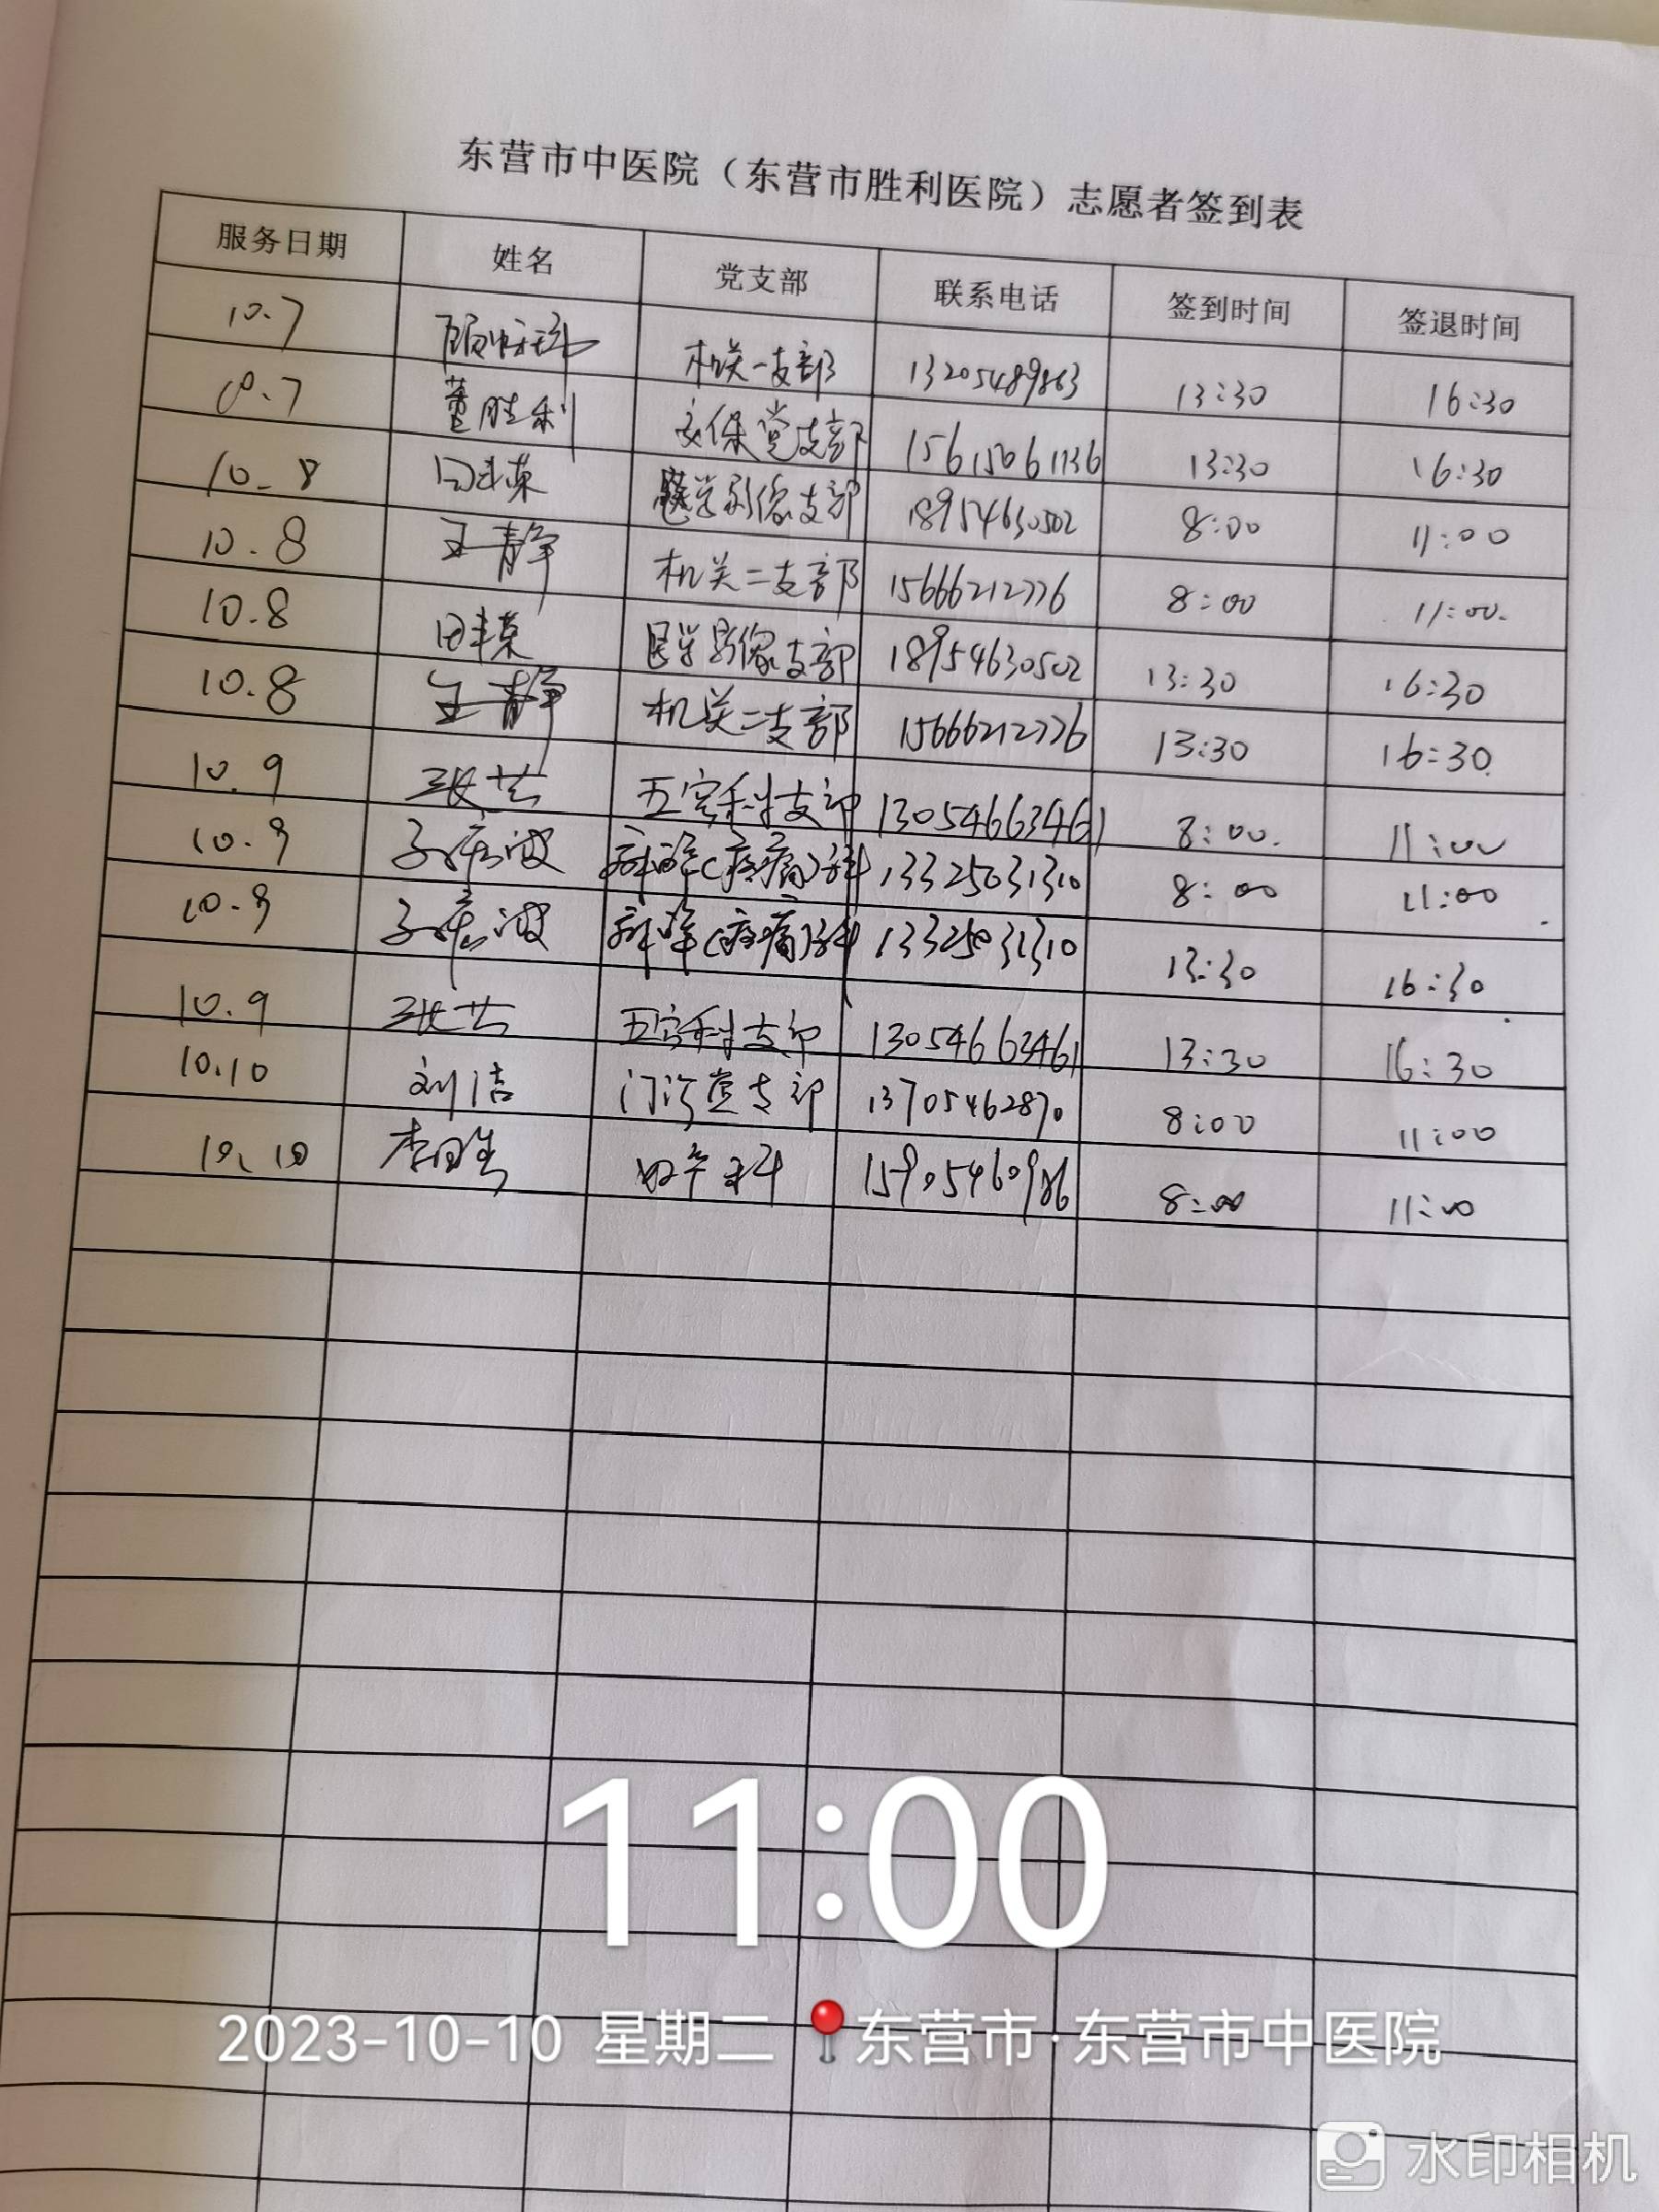 东营市中医院（东营市胜利医院）志愿者签到表
服务日期 姓名 党支部 联系电话 签到时间 签退时间
10.7 机关一支部 13205489863 13:30 16:30
10.7 董胜利 安保党支部 15615061136 13:30 16:30
10.8 田丰荣 医学影像支部 18954630502 8:00 11:00
10.8 王静 机关二支部 15666212776 8:00 11:00.
10.8 田丰荣 医学影像支部 18954630502 13:30 16:30
10.8 王静 机关二支部 15666212776 13:30 16:30.
10.9 张芸 五官科支部 13054663461 8:00. 11:00
10.9 (疼痛)科 13325031310 8:00 11:00
10.9 (疼痛)科 13325031310 13:30 16:30
10.9 张芸 五官科支部 13054663461 13:30 16:30
10.10 刘洁 门诊党支部 13705462870 8:00 11:00
10.10 15905460986 8:00 11:00
11:00
2023-10-10 星期二 东营市·东营市中医院
水印相机